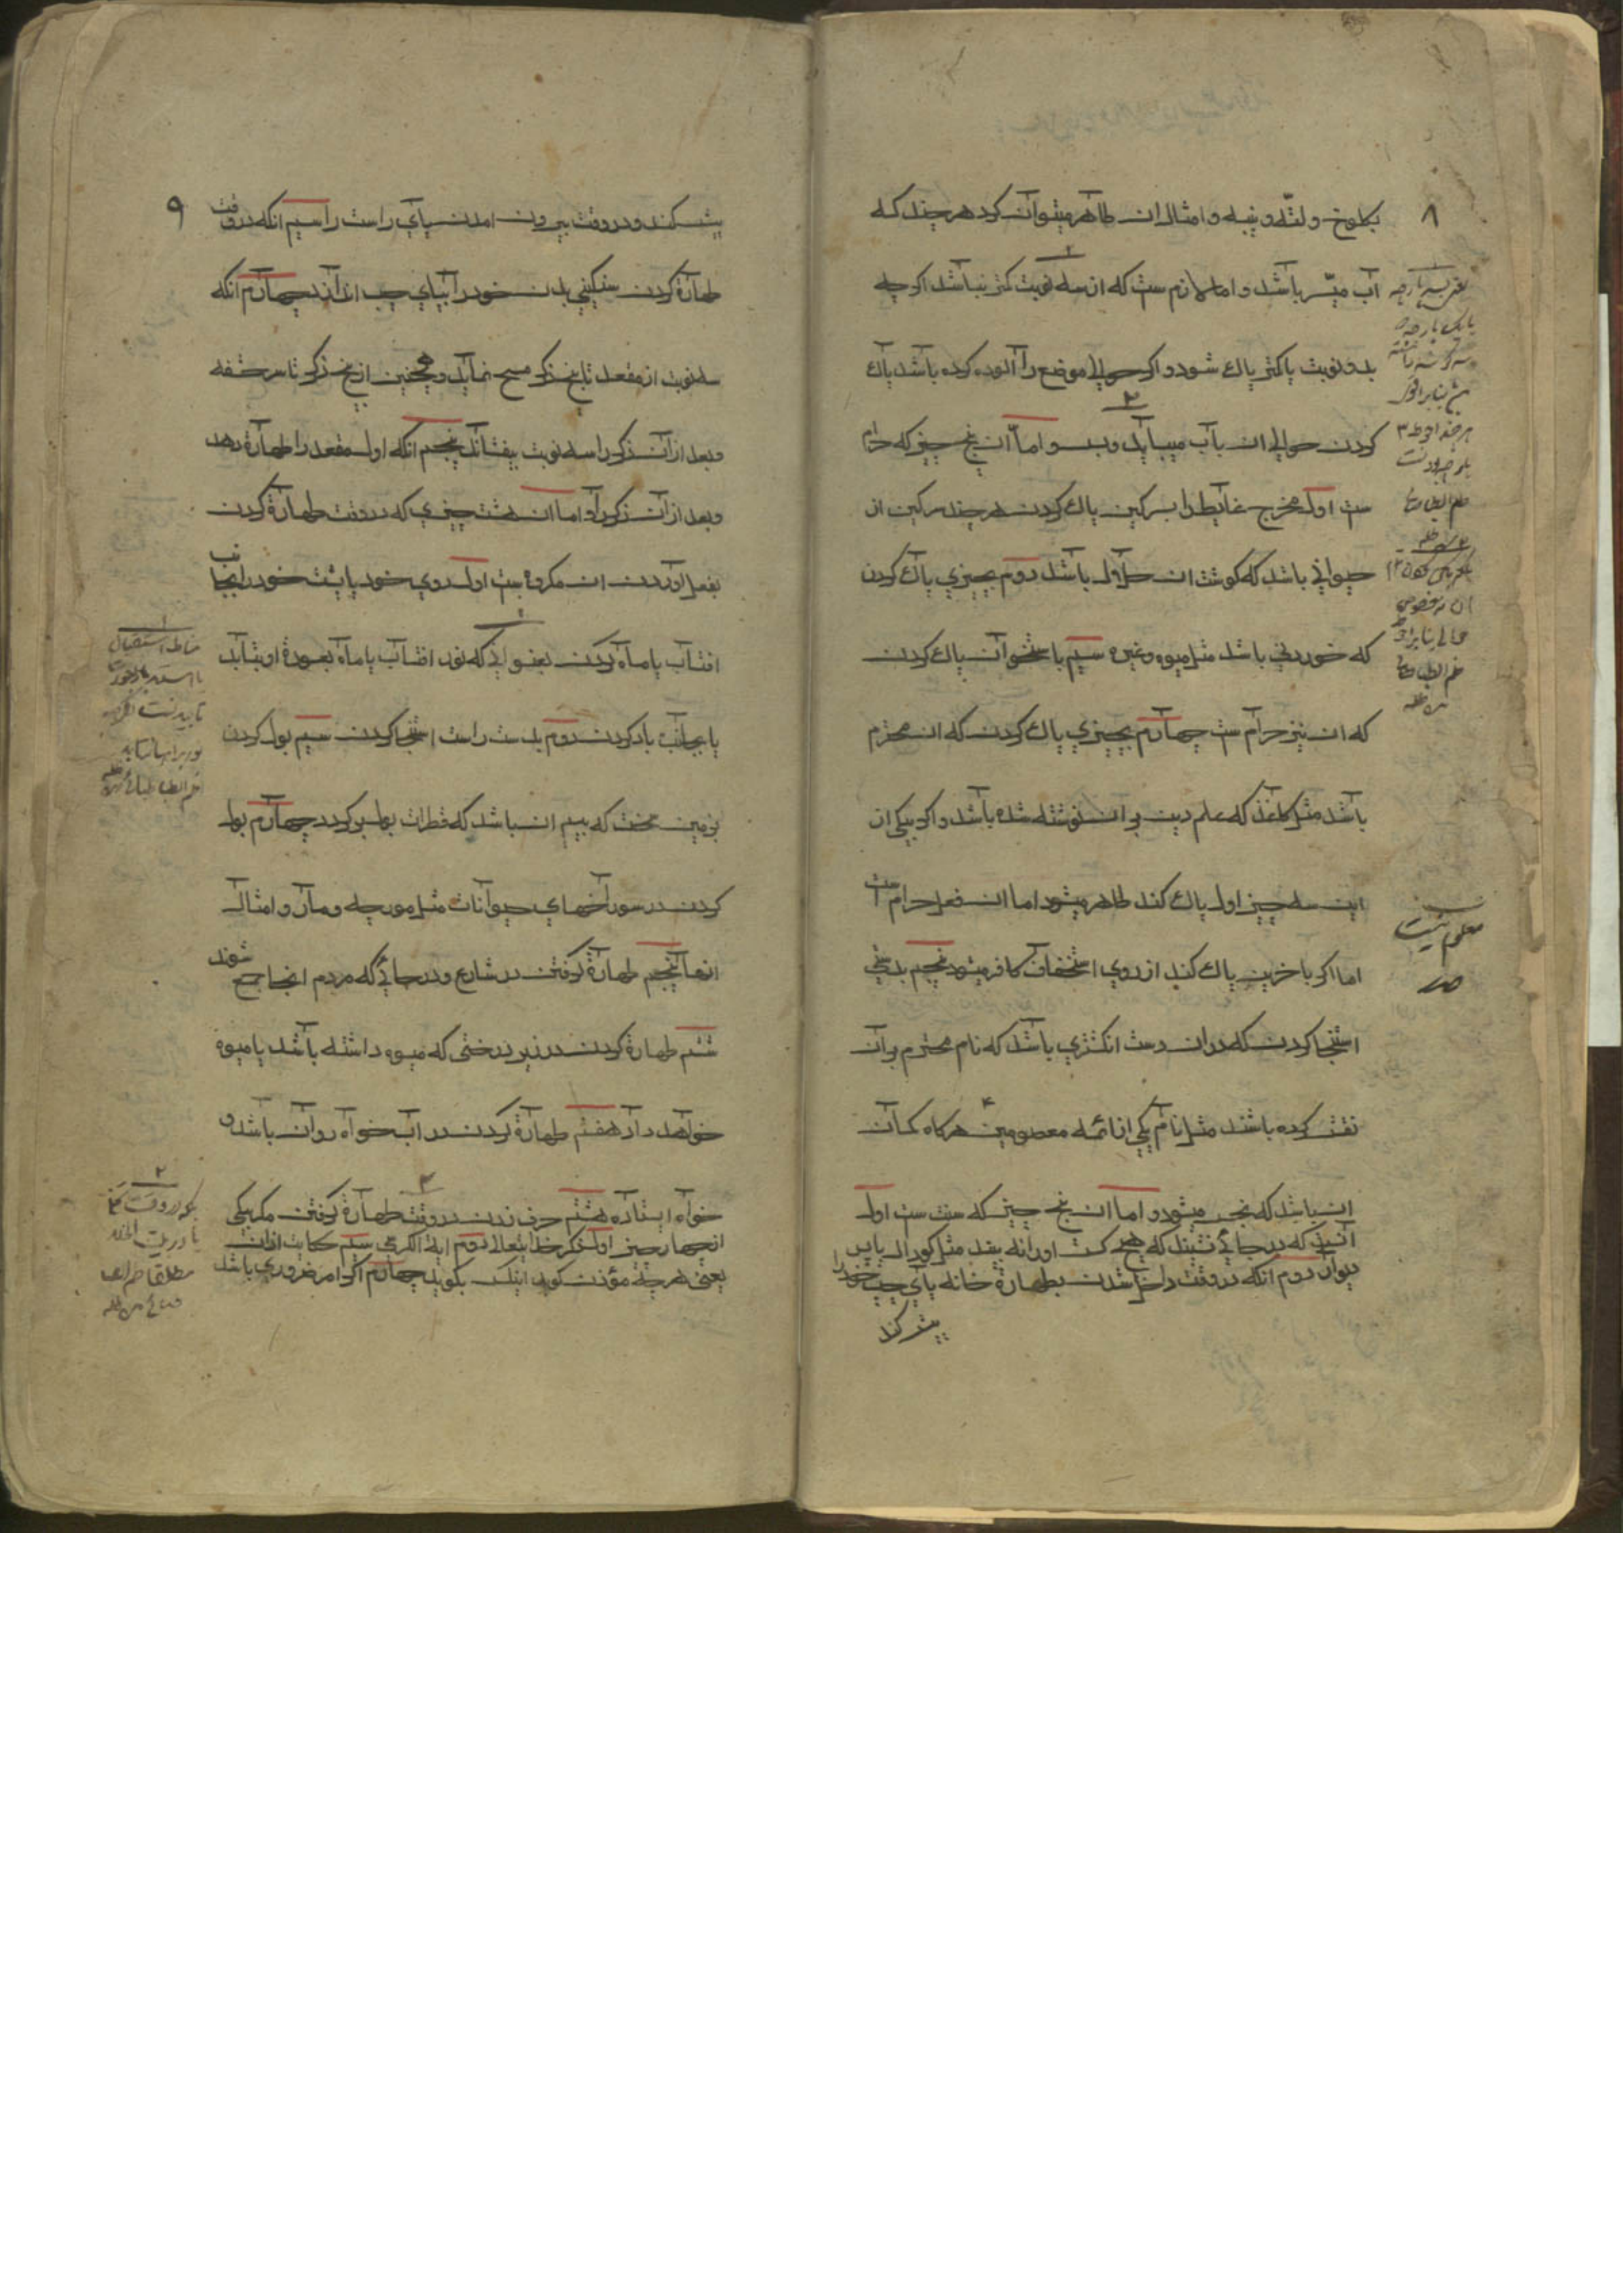 ۸
بکلوخ و لته و پنبه و امثال ان طاهر میتوان کرد هر چند که
آب میسر باشد و اما لازم ست که از سه نوبت کمتر نباشد اکر چه
بدو نوبت یا کمتر پاک شود و اکر حوالی موضع را آلوده کرده باشد پاک
کردن حوالی ان بآب میباید و بس و اما ان پنج چیز که حرام
ست اول مخرج غایط را بسرکین پاک کردن هر چند سرکین از
حیوانی باشد که کوشت ان حلال باشد دوم بچیزی پاک کردن
که خوردنی باشد مثل میوه و غیره سیم باستخوان پاک کردن
که ان نیز حرام ست چهارم بچیزی پاک کردن که ان محترم
باشد مثل کاغذ که علم دین بر ان نوشته شده باشد و اکر بیکی از
این سه چیز اول پاک کند طاهر میشود اما ان فعل حرام ست
اما اکر باخرین پاک کند از روی استخفاف کافر میشود پنجم بدستی
استنجا کردن که در ان دست انکشتری باشد که نام محترم بر آن
نقش کرده باشند مثل نام یکی از ائمه معصومین هرکاه کمان
ان باشد که نجس میشود و اما ان پنج چیز که سنت ست اول
آنکه در جائی نشیند که هیچ کس او را نه بیند مثل کودال یا پس
دیوار دوم انکه در وقت داخل شدن بطهارة خانه پای چپ خود را
پیش کند
معلوم نیست
۹
پیش کند و در وقت بیرون امدن پای راست را سیم انکه در وقت
طهارة کردن سنکینی بدن خود را بپای چپ اندازد چهارم انکه
سه نوبت از مقعد تا بیخ ذکر مسح نماید و همچنین از بیخ ذکر تا سر حشفه
و بعد از آن ذکر را سه نوبت بیفشاند پنجم انکه اول مقعد را طهارة دهد
و بعد از آن ذکر را و اما ان هشت چیزی که در وقت طهارة کردن
بفعل اوردن ان مکروه ست اول روی خود یا پشت خود را بجانب
افتاب یا ماه کردن بعنوانی که نور افتاب یا ماه بعورة او بتابد
یا بجانب باد کردن دوم بدست راست استنجا کردن سیم بول کردن
بزمین سخت که بیم ان باشد که قطرات بول برکردد چهارم بول
کردن در سوراخهای حیوانات مثل مورچه و مار و امثال
انها پنجم طهارة کرفتن در شارع و در جائی که مردم انجا جمع شوند
ششم طهارة کردن در زیر درختی که میوه داشته باشد یا میوه
خواهد داد هفتم طهارة کردن در اب خواه روان باشد و
خواه ایستاده هشتم حرف زدن در وقت طهارة کرفتن مکر بیکی
از چهار چیز اول ذکر خدایتعالی دوم ایة الکرسی سیم حکایت اذان
یعنی هر چه مؤذن کوید اینکس بکوید چهارم اکر امر ضروری باشد